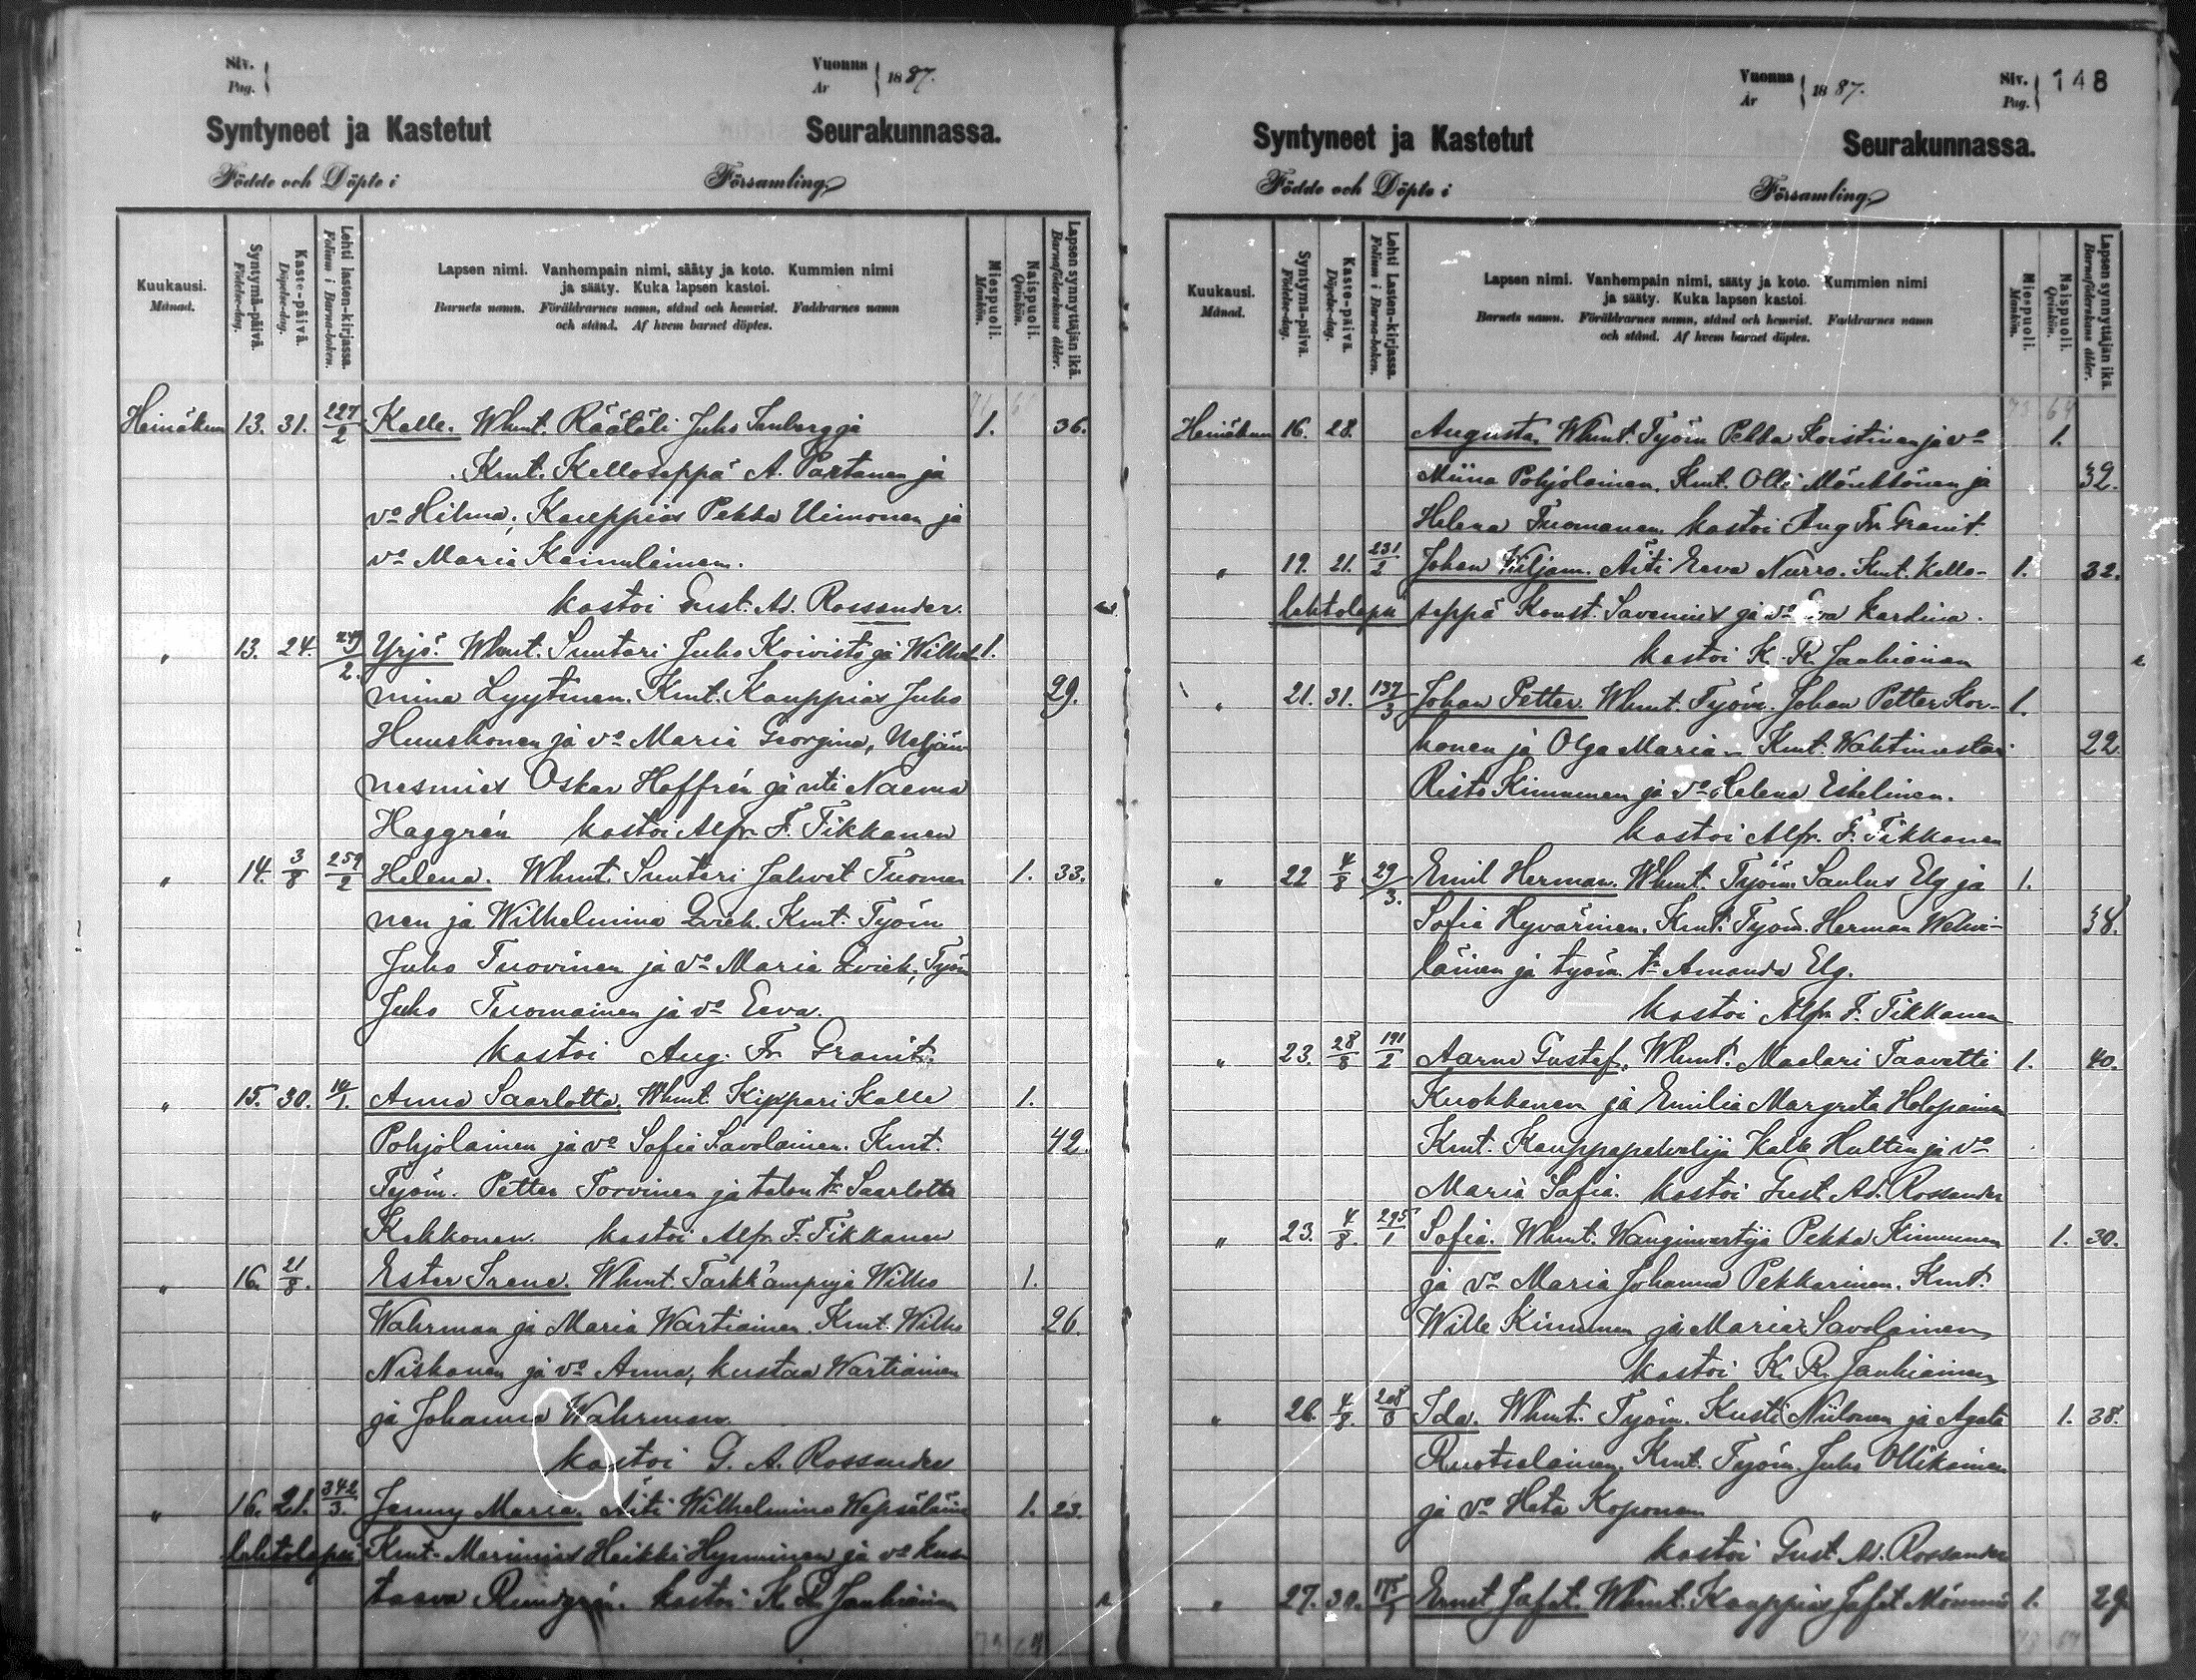 Siv.
Pag.
Vuonna
År
1887.
Syntyneet ja Kastetut Seurakunnassa.
Födde och Döpte i Församling
Kuukausi.
Månad.
Syntymä-päivä.
Födelse-dag.
Kaste-päivä.
Döpelse-dag.
Lehti lasten-kirjassa.
Folium i Barna-boken.
Lapsen nimi. Vanhempain nimi, sääty ja koto. Kummien nimi
ja sääty. Kuka lapsen kastoi.
Barnets namn. Föräldrarnes namn, stånd och hemvist. Faddrarnes namn
och stånd. Af hvem barnet döptes.
Miespuoli.
Mankön.
Naispuoli.
Qvinkön.
Lapsen synnyttäjän ikä.
Barnaföderskans ålder.
Heinäkuu 13. 31. 227/2 Kalle. Whmt. Räätäli Juho ja 1. 36.
Kmt. Kelloseppä A. Partanen ja
vo Hilma; Kauppias Pekka Uimonen ja
vo Maria Kainulainen.
kastoi Gust. Ad. Rossander.
„ 13. 24. 249/2. Yrjö. Whmt. Suutari Juho Koivisto ja Wilhel- 1.
mina Lyytinen. Kmt. Kauppias Juho 29.
Huuskonen ja vo Maria Georgina, Neljän-
nesmies Oskar Hoffrén ja nti Naema
Haggrén kastoi Alfr. F. Tikkanen
„ 14. 3/8 259/2 Helena. Whmt. Suutari Jahvet Tuoma- 1. 33.
nen ja Wilhelmina Qvick. Kmt. Työm
Juho Tuovinen ja vo Maria Qvick; Työm
Juho Tuomainen ja vo Eeva.
kastoi Aug. Fr. Granit.
„ 15. 30. 14/1. Anna Saarlotta. Whmt. Kippari Kalle 1.
Pohjolainen ja vo Sofia Savolainen. Kmt. 42.
Työm. Petter Torvinen ja talon tr Saarlotta
Kakkonen. kastoi Alfr. F. Tikkanen
„ 16. 21/8. Ester Irene. Whmt. Tarkk'ampuja Wilho 1.
Wahrman ja Maria Wartiainen. Kmt. Wilho 26.
Niskanen ja vo Anna, Kustaa Wartiainen
ja Johanna Wahrman.
kastoi G. A. Rossander
„ 16. 21. 342/3. Jenny Maria. Äiti Wilhelmina Wepsäläinen 1. 23.
lehtolapsi Kmt. Merimies Heikki Hynninen ja vo Kus-
taava Rundgrén. kastoi K. R. Jauhiainen
Vuonna
År
1887.
Siv.
Pag.
148
Syntyneet ja Kastetut Seurakunnassa.
Födde och Döpte i Församling
Kuukausi.
Månad.
Syntymä-päivä.
Födelse-dag.
Kaste-päivä.
Döpelse-dag.
Lehti Lasten-kirjassa.
Folium i Barna-boken.
Lapsen nimi. Vanhempain nimi, sääty ja koto. Kummien nimi
ja sääty. Kuka lapsen kastoi.
Barnets namn. Föräldrarnes namn, stånd och hemvist. Faddrarnes namn
och stånd. Af hvem barnet döptes.
Miespuoli.
Mankön.
Naispuoli.
Qvinkön.
Lapsen synnyttäjän ikä.
Barnaföderskans ålder.
Heinäkuu 16. 28. Augusta. Whmt. Työm Pekka Koistinen ja vo 1.
Miina Pohjolainen. Kmt. Olli Mönkkönen ja 32.
Helena Tuomanen. kastoi Aug Fr. Granit.
„ 19. 21. 231/2 Johan Wiljam. Äiti Eeva Nurro. Kmt. Kello- 1. 32.
lehtolapsi seppä Konst. Savenius ja vo Eva Kardina.
kastoi K. R. Jauhiainen
„ 21. 31. 137/3 Johan Petter. Whmt. Työm. Johan Petter Kor- 1.
honen ja Olga Maria. Kmt. Wahtimestari 22.
Risto Kinnunen ja vo Helena Eskelinen.
kastoi Alfr. F. Tikkanen
„ 22 4/8 29/3. Emil Herman. Whmt. Työm. Saulus Elg ja 1.
Sofia Hyvärinen. Kmt. Työm. Herman Wehvi- 38.
läinen ja työm. tr Amanda Elg.
kastoi Alfr. F. Tikkanen
„ 23. 28/8 191/2 Aarne Gustaf. Whmt. Maalari Taavetti 1. 40.
Kuokkanen ja Emilia Margreta Holopainen
Kmt. Kauppapalvelija Kalle Hultin ja vo
Maria Sofia. kastoi Gust. Ad. Rossander
„ 23. 4/8. 295/1 Sofia. Whmt. Wanginvartija Pekka Kinnunen 1. 30.
ja vo Maria Johanna Pekkarinen. Kmt.
Wille Kinnunen ja Maria Savolainen
kastoi K. R. Jauhiainen
„ 26. 4/8. Ida. Whmt. Työm. Kusti Niilonen ja Agata 1. 38.
Ruotsalainen. Kmt. Työm. Juho Ollikainen
ja vo Heta Koponen
kastoi Gust. Ad. Rossander
„ 27. 30. 175/1 Ernst Jafet. Whmt. Kauppias Jafet Mönnin 1. 29.